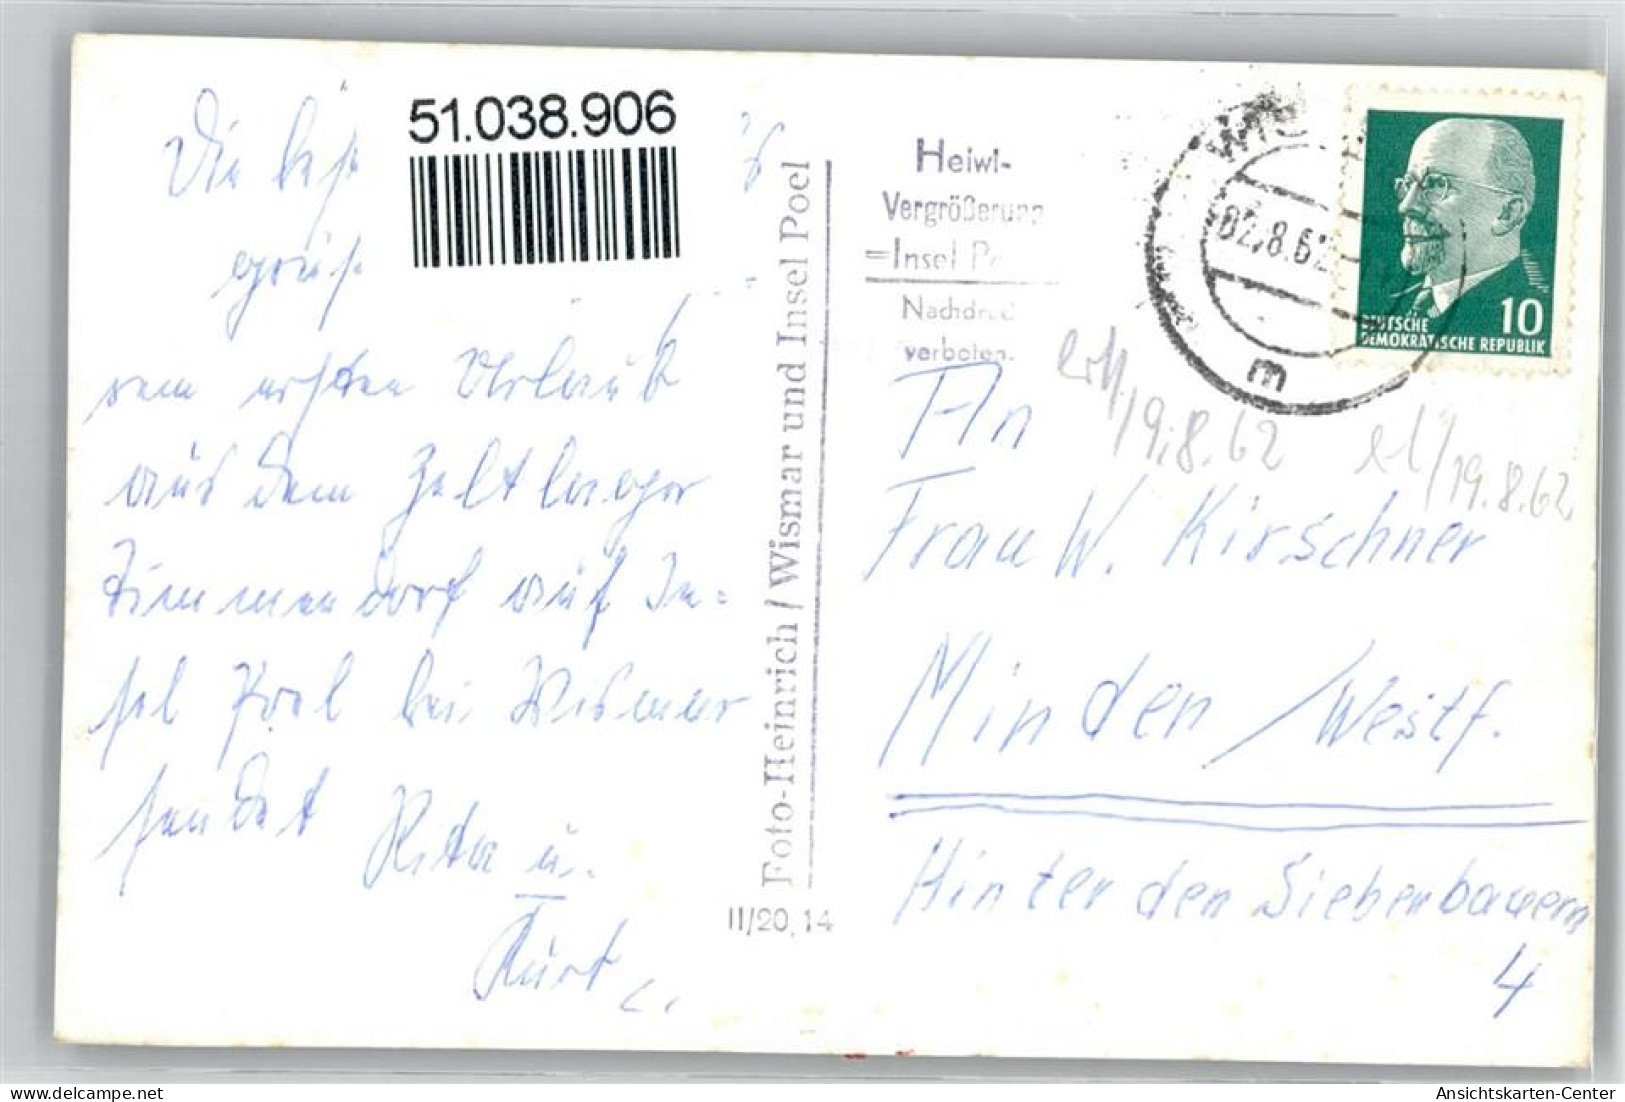 51.038.906
Die
vom ersten Urlaub
aus dem Zeltlager
Timmendorf auf In=
sel Poel bei Wismar
sendet Rita u.
Kurt
Foto-Heinrich / Wismar und Insel Poel
II/20,14
Heiwi-
Vergrößerung
=Insel
Nachdruck
verboten.
02.8.62
m
10
DEUTSCHE
DEMOKRATISCHE REPUBLIK
19.8.62
19.8.62
An
Frau W. Kirschner
Minden /Westf.
Hinter den Siebenbauern
4
Ansichtskarten-Center